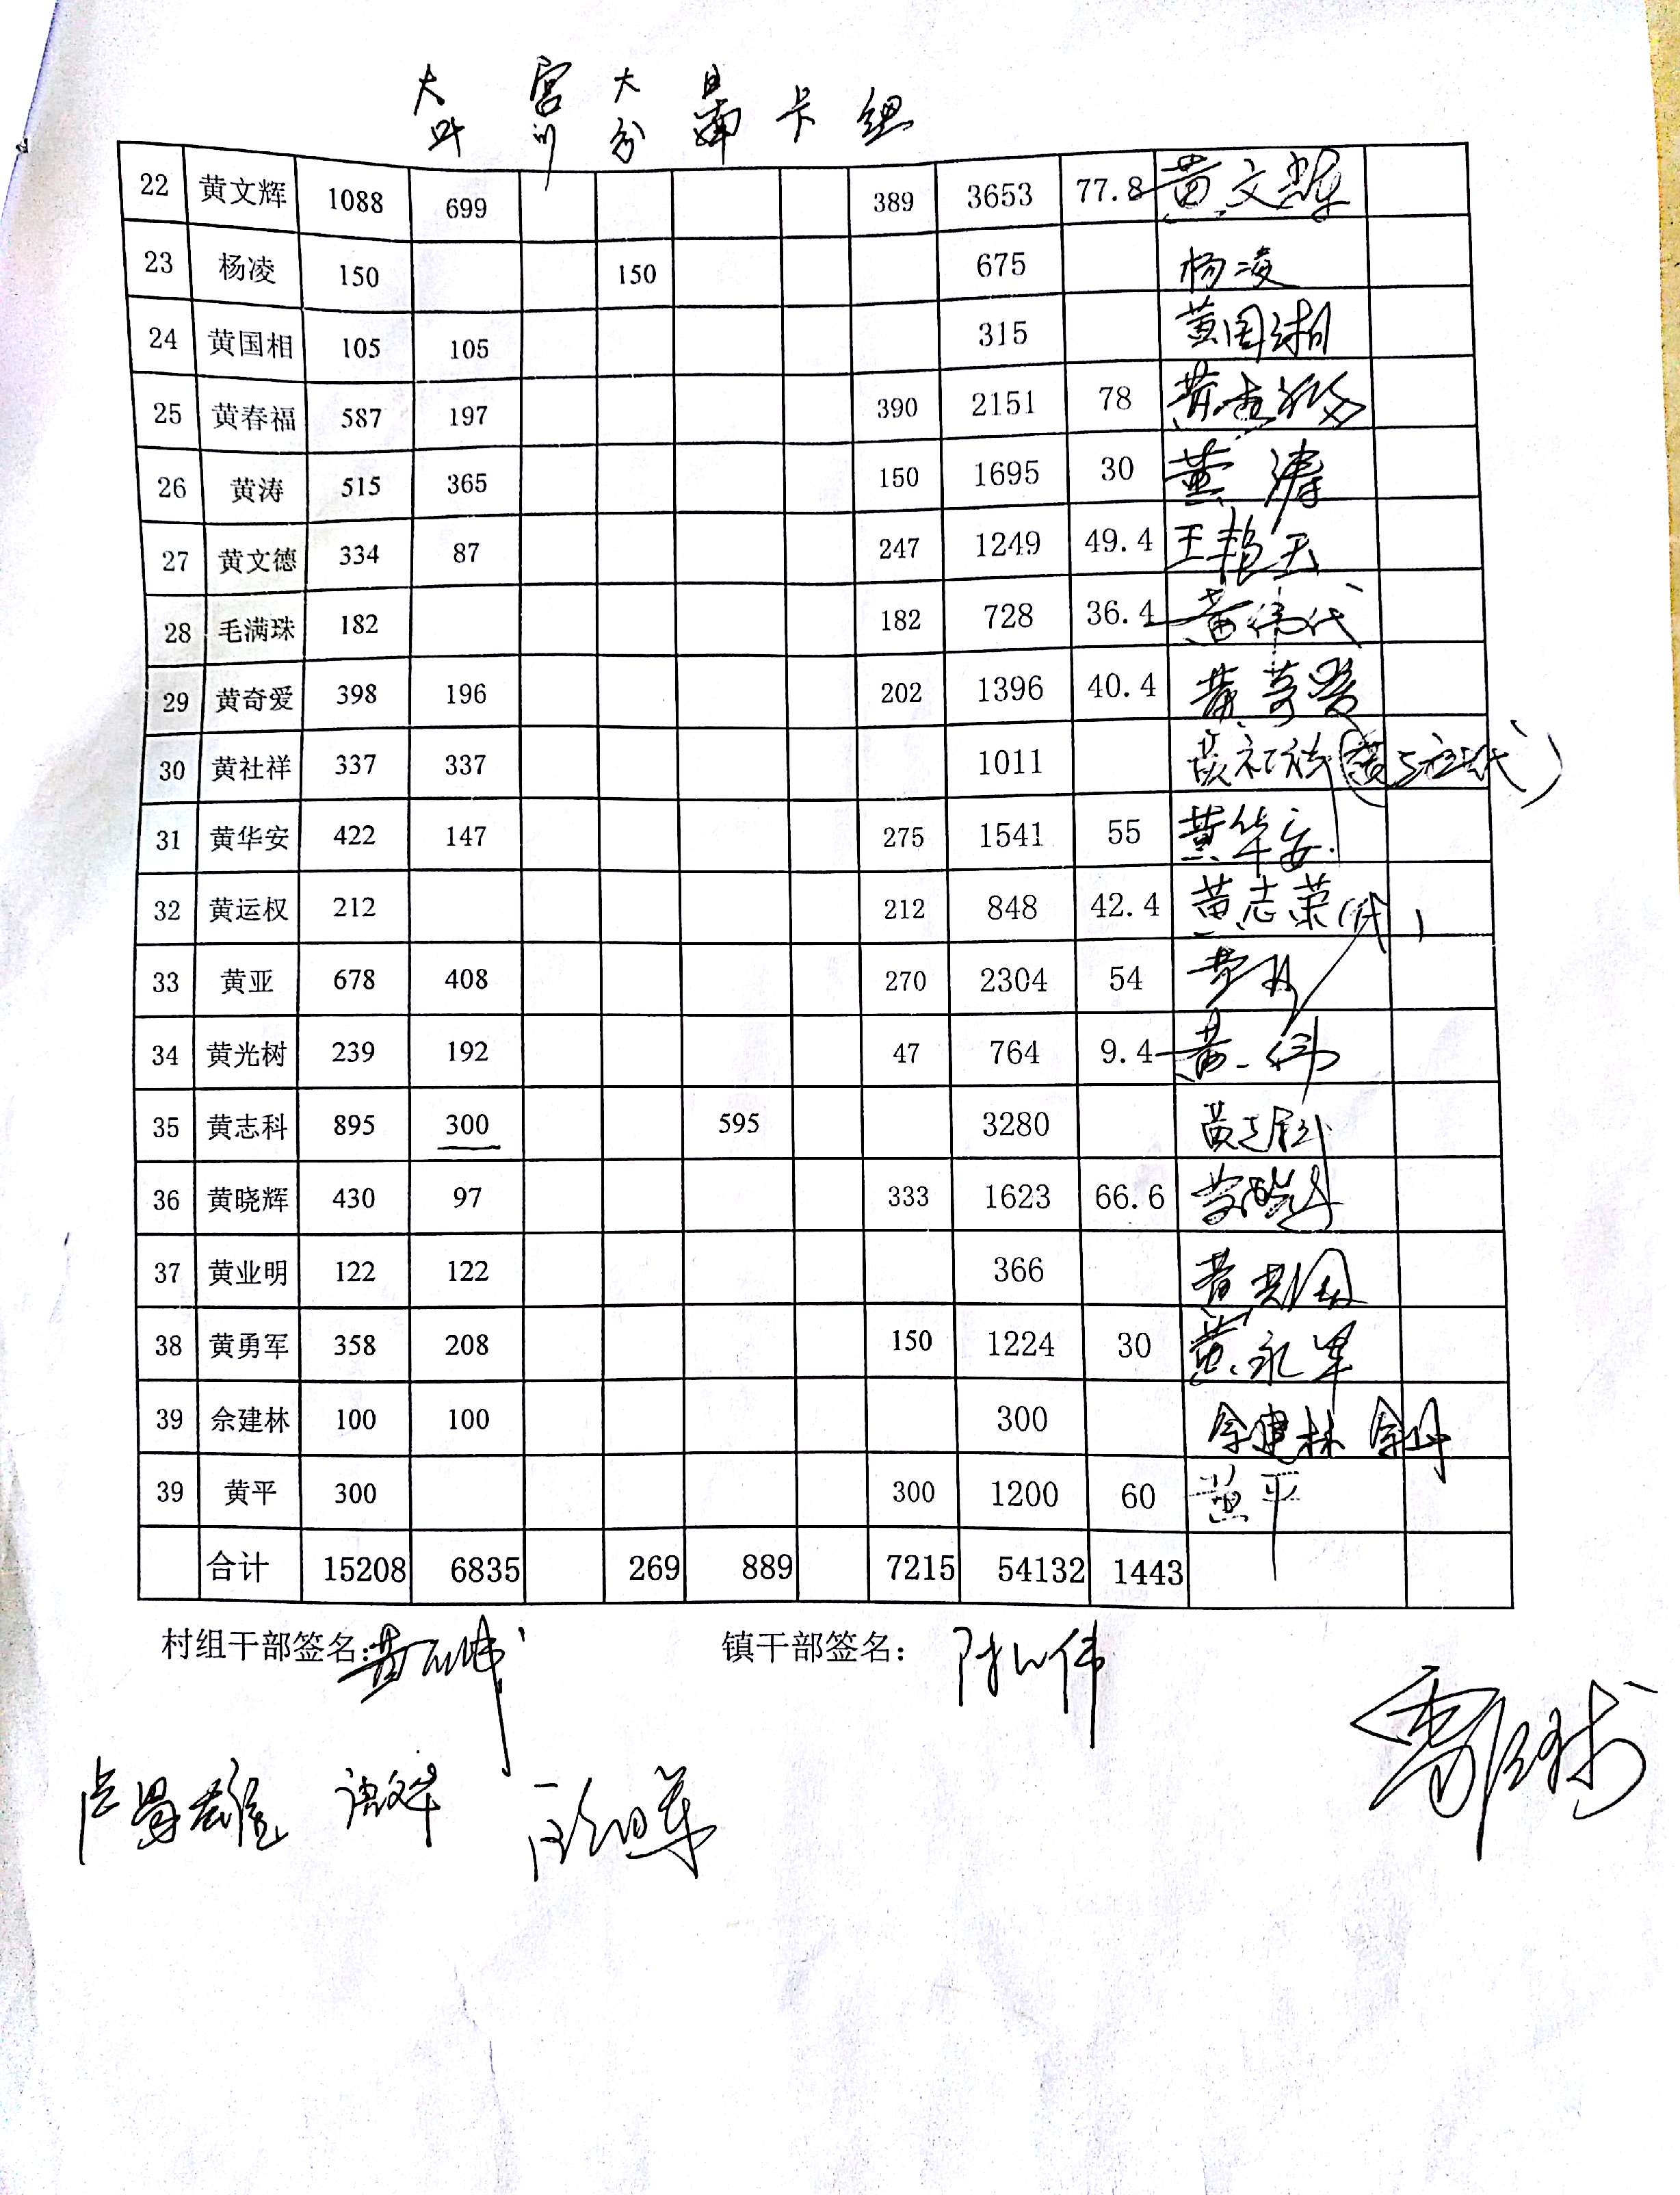 大 宫 大
叶 分 卡 组
22 黄文辉 1088 699 389 3653 77.8 黄文辉
23 杨凌 150 150 675 杨凌
24 黄国相 105 105 315 黄国相
25 黄春福 587 197 390 2151 78 黄春福
26 黄涛 515 365 150 1695 30 黄涛
27 黄文德 334 87 247 1249 49.4 王艳玉
28 毛满珠 182 182 728 36.4 黄伟代
29 黄奇爱 398 196 202 1396 40.4 黄奇爱
30 黄社祥 337 337 1011 黄社祥
31 黄华安 422 147 275 1541 55 黄华安
32 黄运权 212 212 848 42.4 黄志荣(代)
33 黄亚 678 408 270 2304 54 黄亚
34 黄光树 239 192 47 764 9.4 黄伟
35 黄志科 895 300 595 3280 黄志科
36 黄晓辉 430 97 333 1623 66.6 黄晓辉
37 黄业明 122 122 366
38 黄勇军 358 208 150 1224 30 黄永军
39 佘建林 100 100 300 佘建林
39 黄平 300 300 1200 60 黄平
合计 15208 6835 269 889 7215 54132 1443
村组干部签名: 镇干部签名: